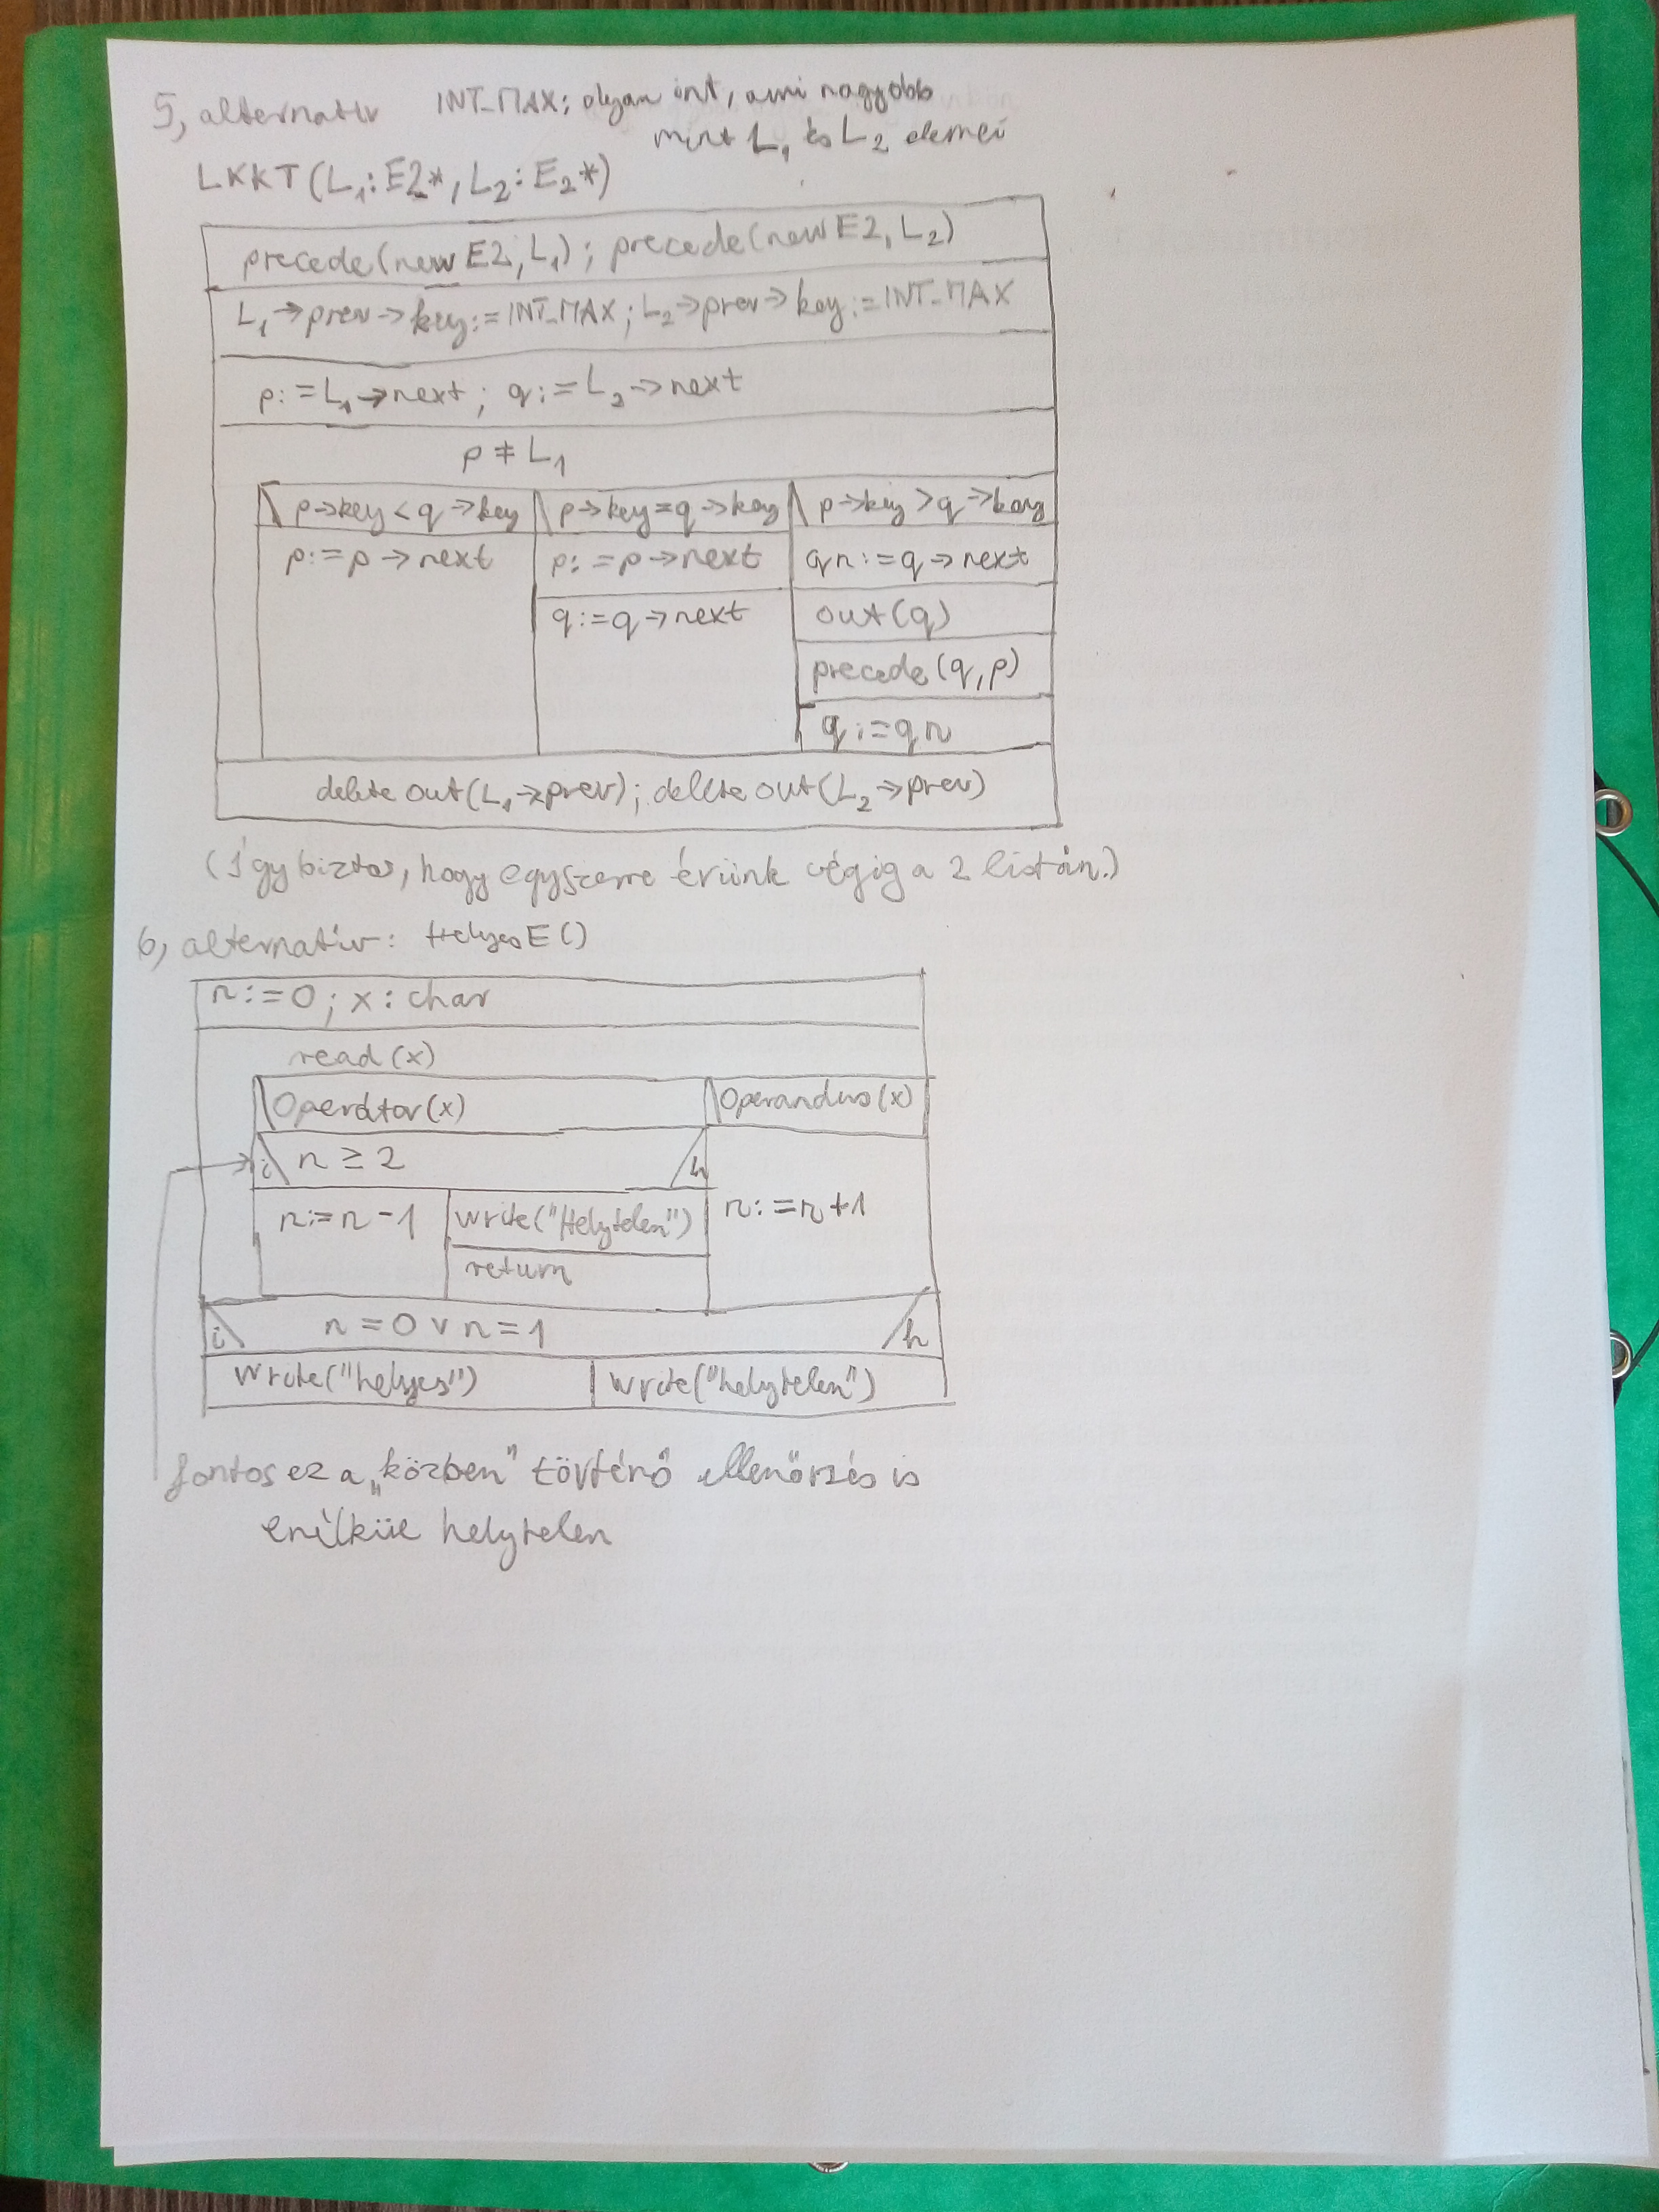 5, alternatív INT_MAX: olyan int, ami nagyobb
mint L₁ és L₂ elemei
LKKT(L₁:E2*, L₂:E₂*)
precede(new E2, L₁); precede(new E2, L₂)
L₁→prev→key:=INT_MAX; L₂→prev→key:=INT_MAX
p:=L₁→next; q:=L₂→next
p≠L₁
p→key<q→key p→key=q→key p→key>q→key
p:=p→next p:=p→next qn:=q→next
q:=q→next out(q)
precede(q,p)
q:=qn
delete out(L₁→prev); delete out(L₂→prev)
(Így biztos, hogy egyszerre érünk végig a 2 listán.)
6, alternatív: HelyesE()
n:=0; x:char
read(x)
Operátor(x) Operandus(x)
i n≥2 h
n:=n-1 write("Helytelen") n:=n+1
return
i n=0 v n=1 h
write("helyes") write("helytelen")
fontos ez a „közben" történő ellenőrzés is
enélkül helytelen